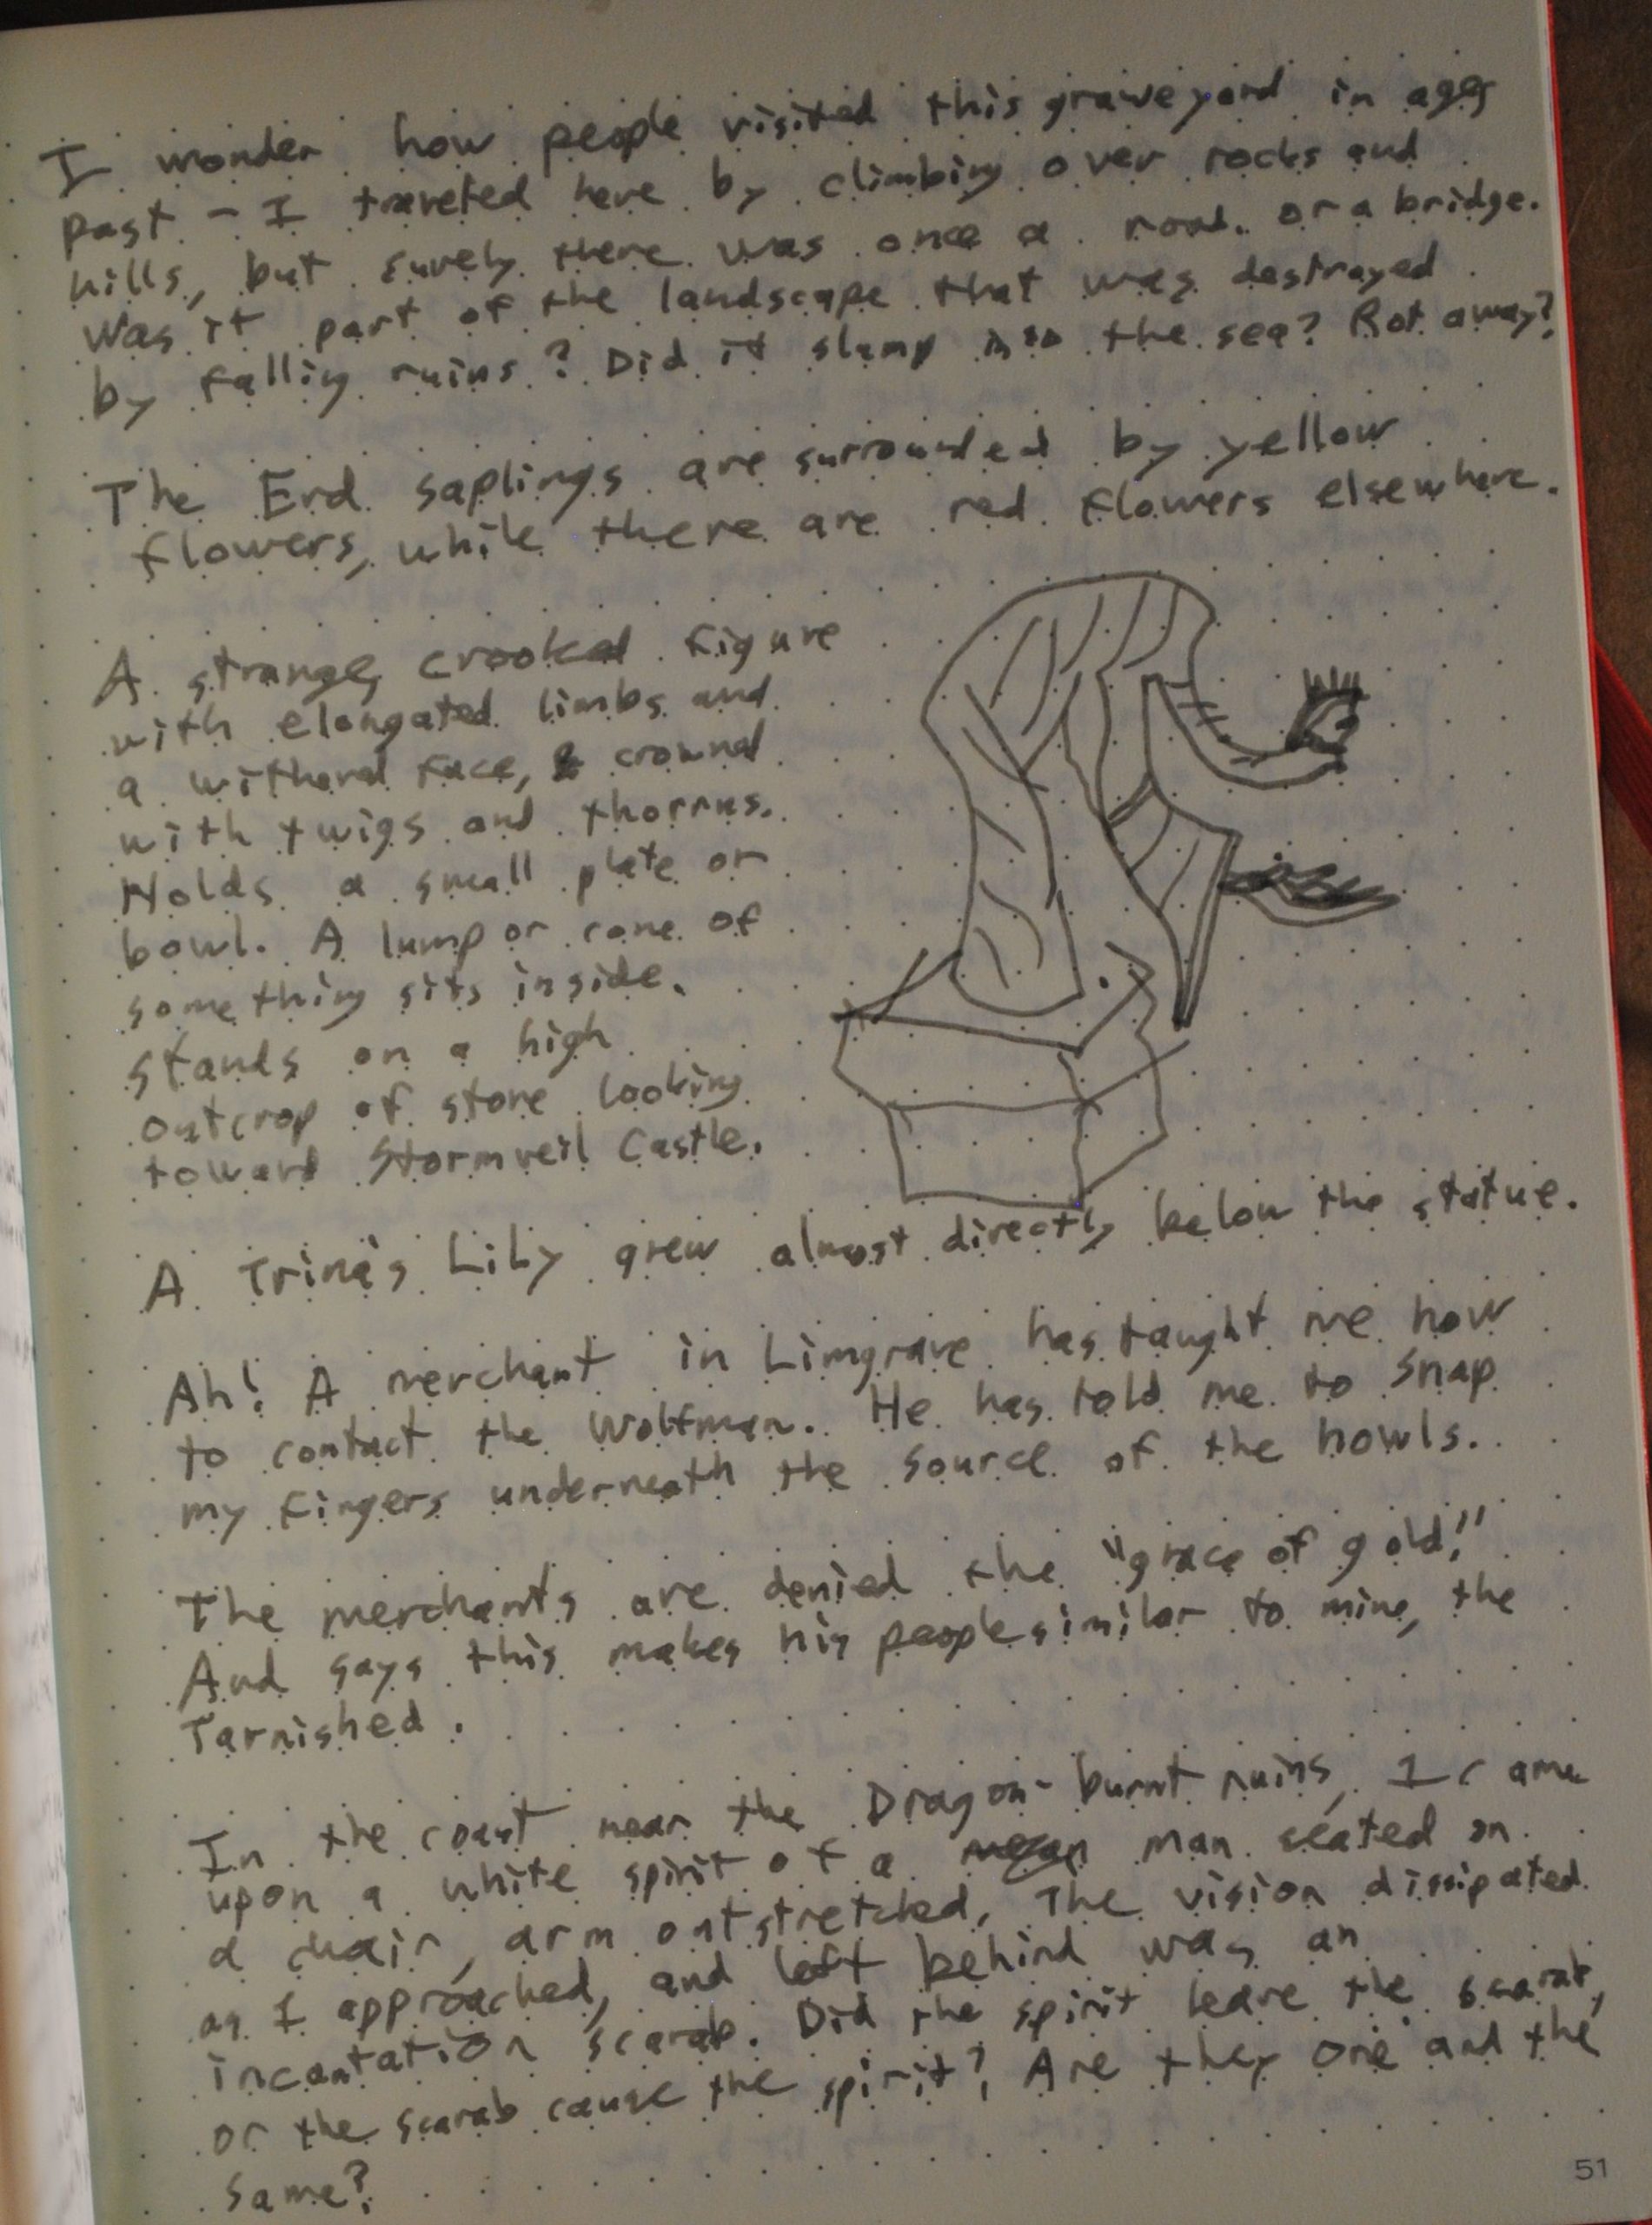 I wonder how people visited this graveyard in ages
past - I traveled here by climbing over rocks and
hills, but surely there was once a road. or a bridge.
Was it part of the landscape that was destroyed
by falling ruins? Did it slump into the sea? Rot away?
The Erd saplings are surrounded by yellow
flowers, while there are red flowers elsewhere.
A strange, crooked figure
with elongated limbs and
a withered face, crowned
with twigs and thorns.
Holds a small plate or
bowl. A lump or cone of
something sits inside.
Stands on a high
outcrop of stone looking
toward Stormveil Castle.
A Trina's Lily grew almost directly below the statue.
Ah! A merchant in Limgrave has taught me how
to contact the Wolfman. He has told me to snap
my fingers underneath the source of the howls.
The merchants are denied the "grace of gold!"
And says this makes his people similar to mine, the
Tarnished.
In the coast near the Dragon-burnt ruins, I came
upon a white spirit of a man seated on
a chair, arm outstretched. The vision dissipated
as I approached, and left behind was an
incantation scarab. Did the spirit leave the scarab,
or the scarab cause the spirit? Are they one and the
same?
51